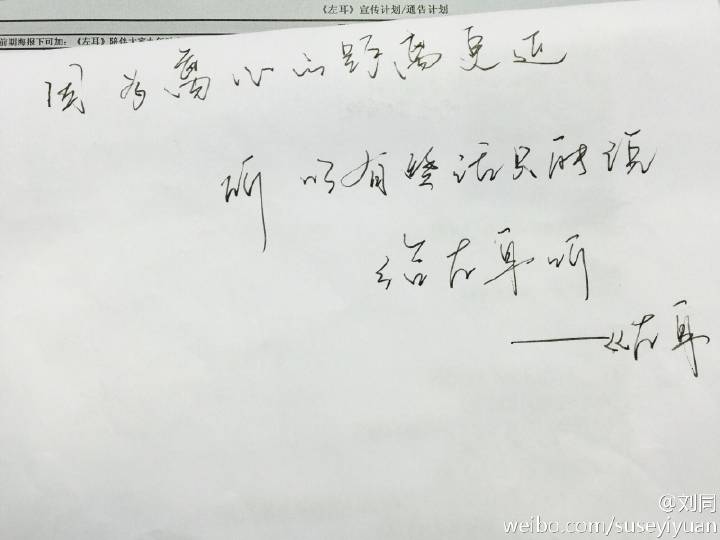 《左耳》宣传计划/通告计划
前期海报下可加:《左耳》陪伴大家九年
因为离心的距离更近
所以有些话只能说
给左耳听
——《左耳
@刘同
weibo.com/suseyiyuan